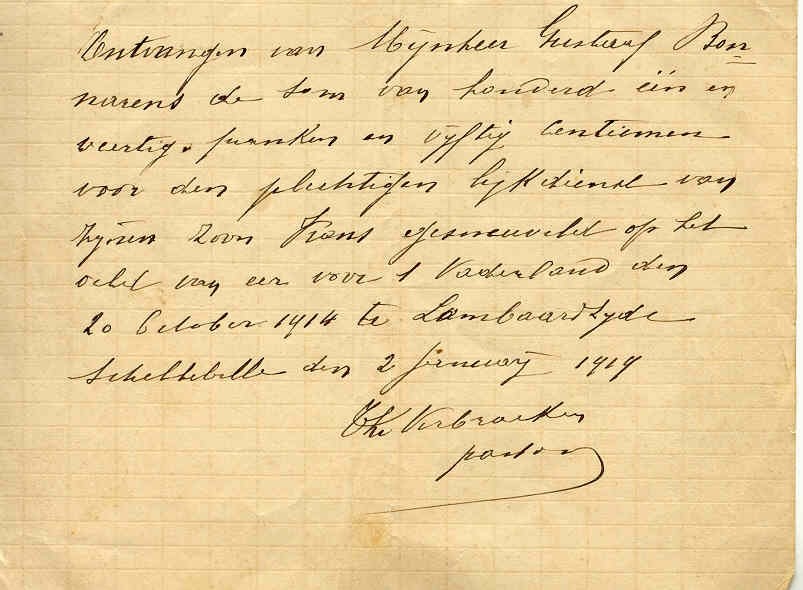 Ontvangen van Mijnheer Gustaaf Bon
narens de som van honderd één en
veertig franken en vyftig Centiemen
voor den plechtigen lijkdienst van
zynen zoon Frans gesneuveld op het
veld van eer voor 't Vaderland den
20 October 1914 te Lombaardzyde
Schellebelle den 2 January 1919
Th. Verbraeken
pastoor